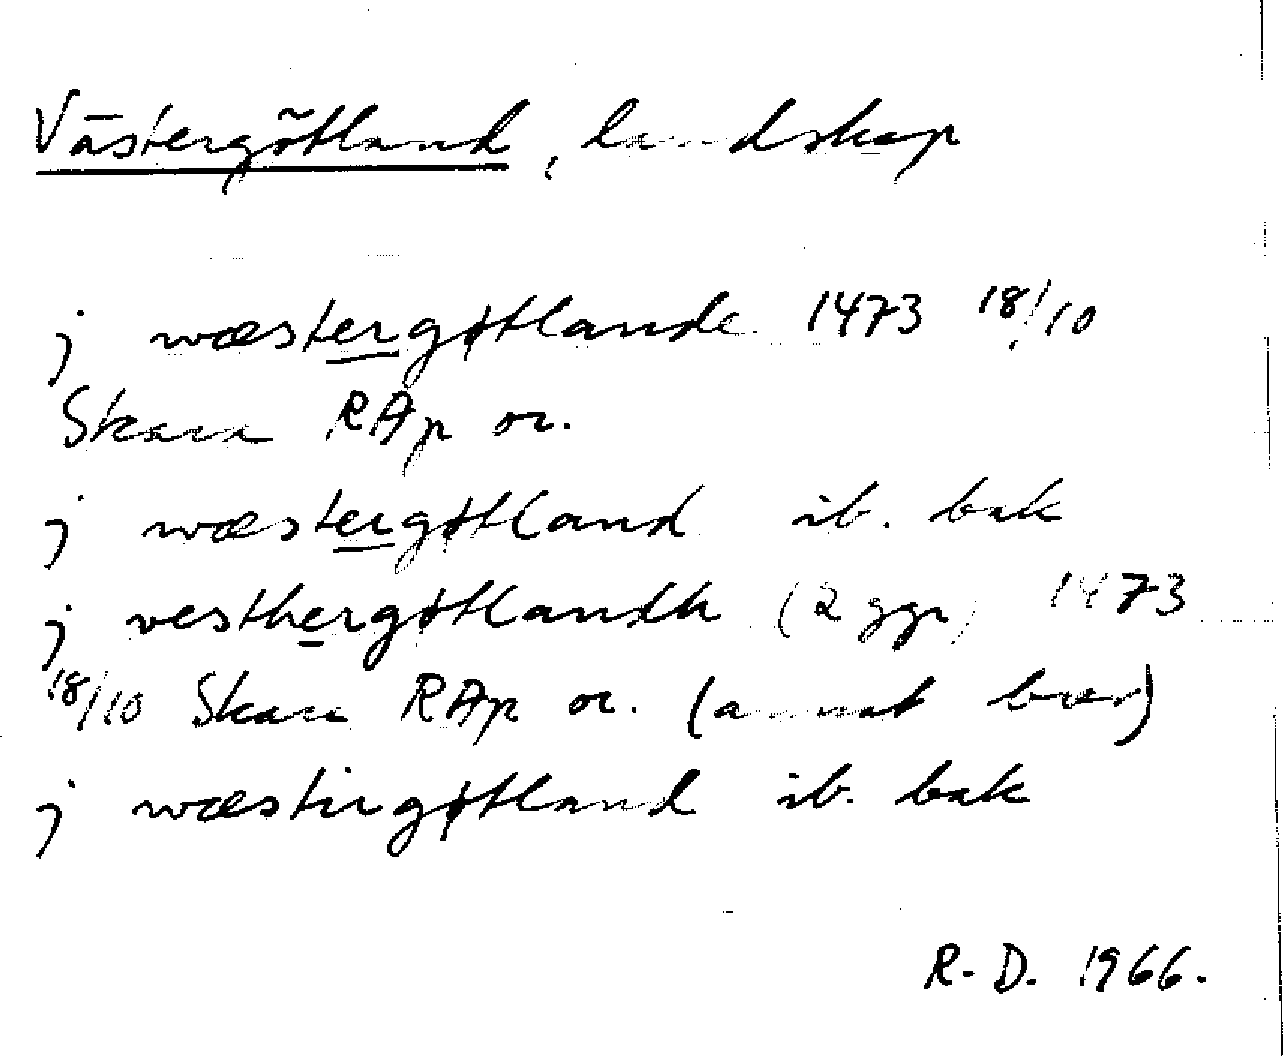 Västergötland, landskap
j wæstergøtlande 1473 18/10
Skara RAp or.
j wæstergøtland ib. bak
j vesthergøtlandh (2 ggr) 1473
18/10 Skara RAp or. (annat brev)
j wæstirgøtland ib. bak
R. D. 1966.